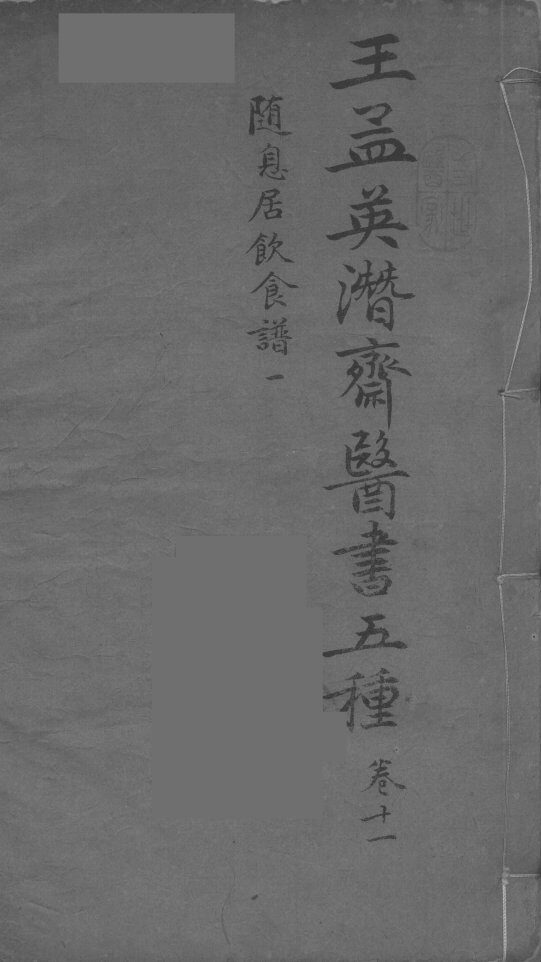 王益英潛齋醫書五種 卷十一
随息居飲食譜 一